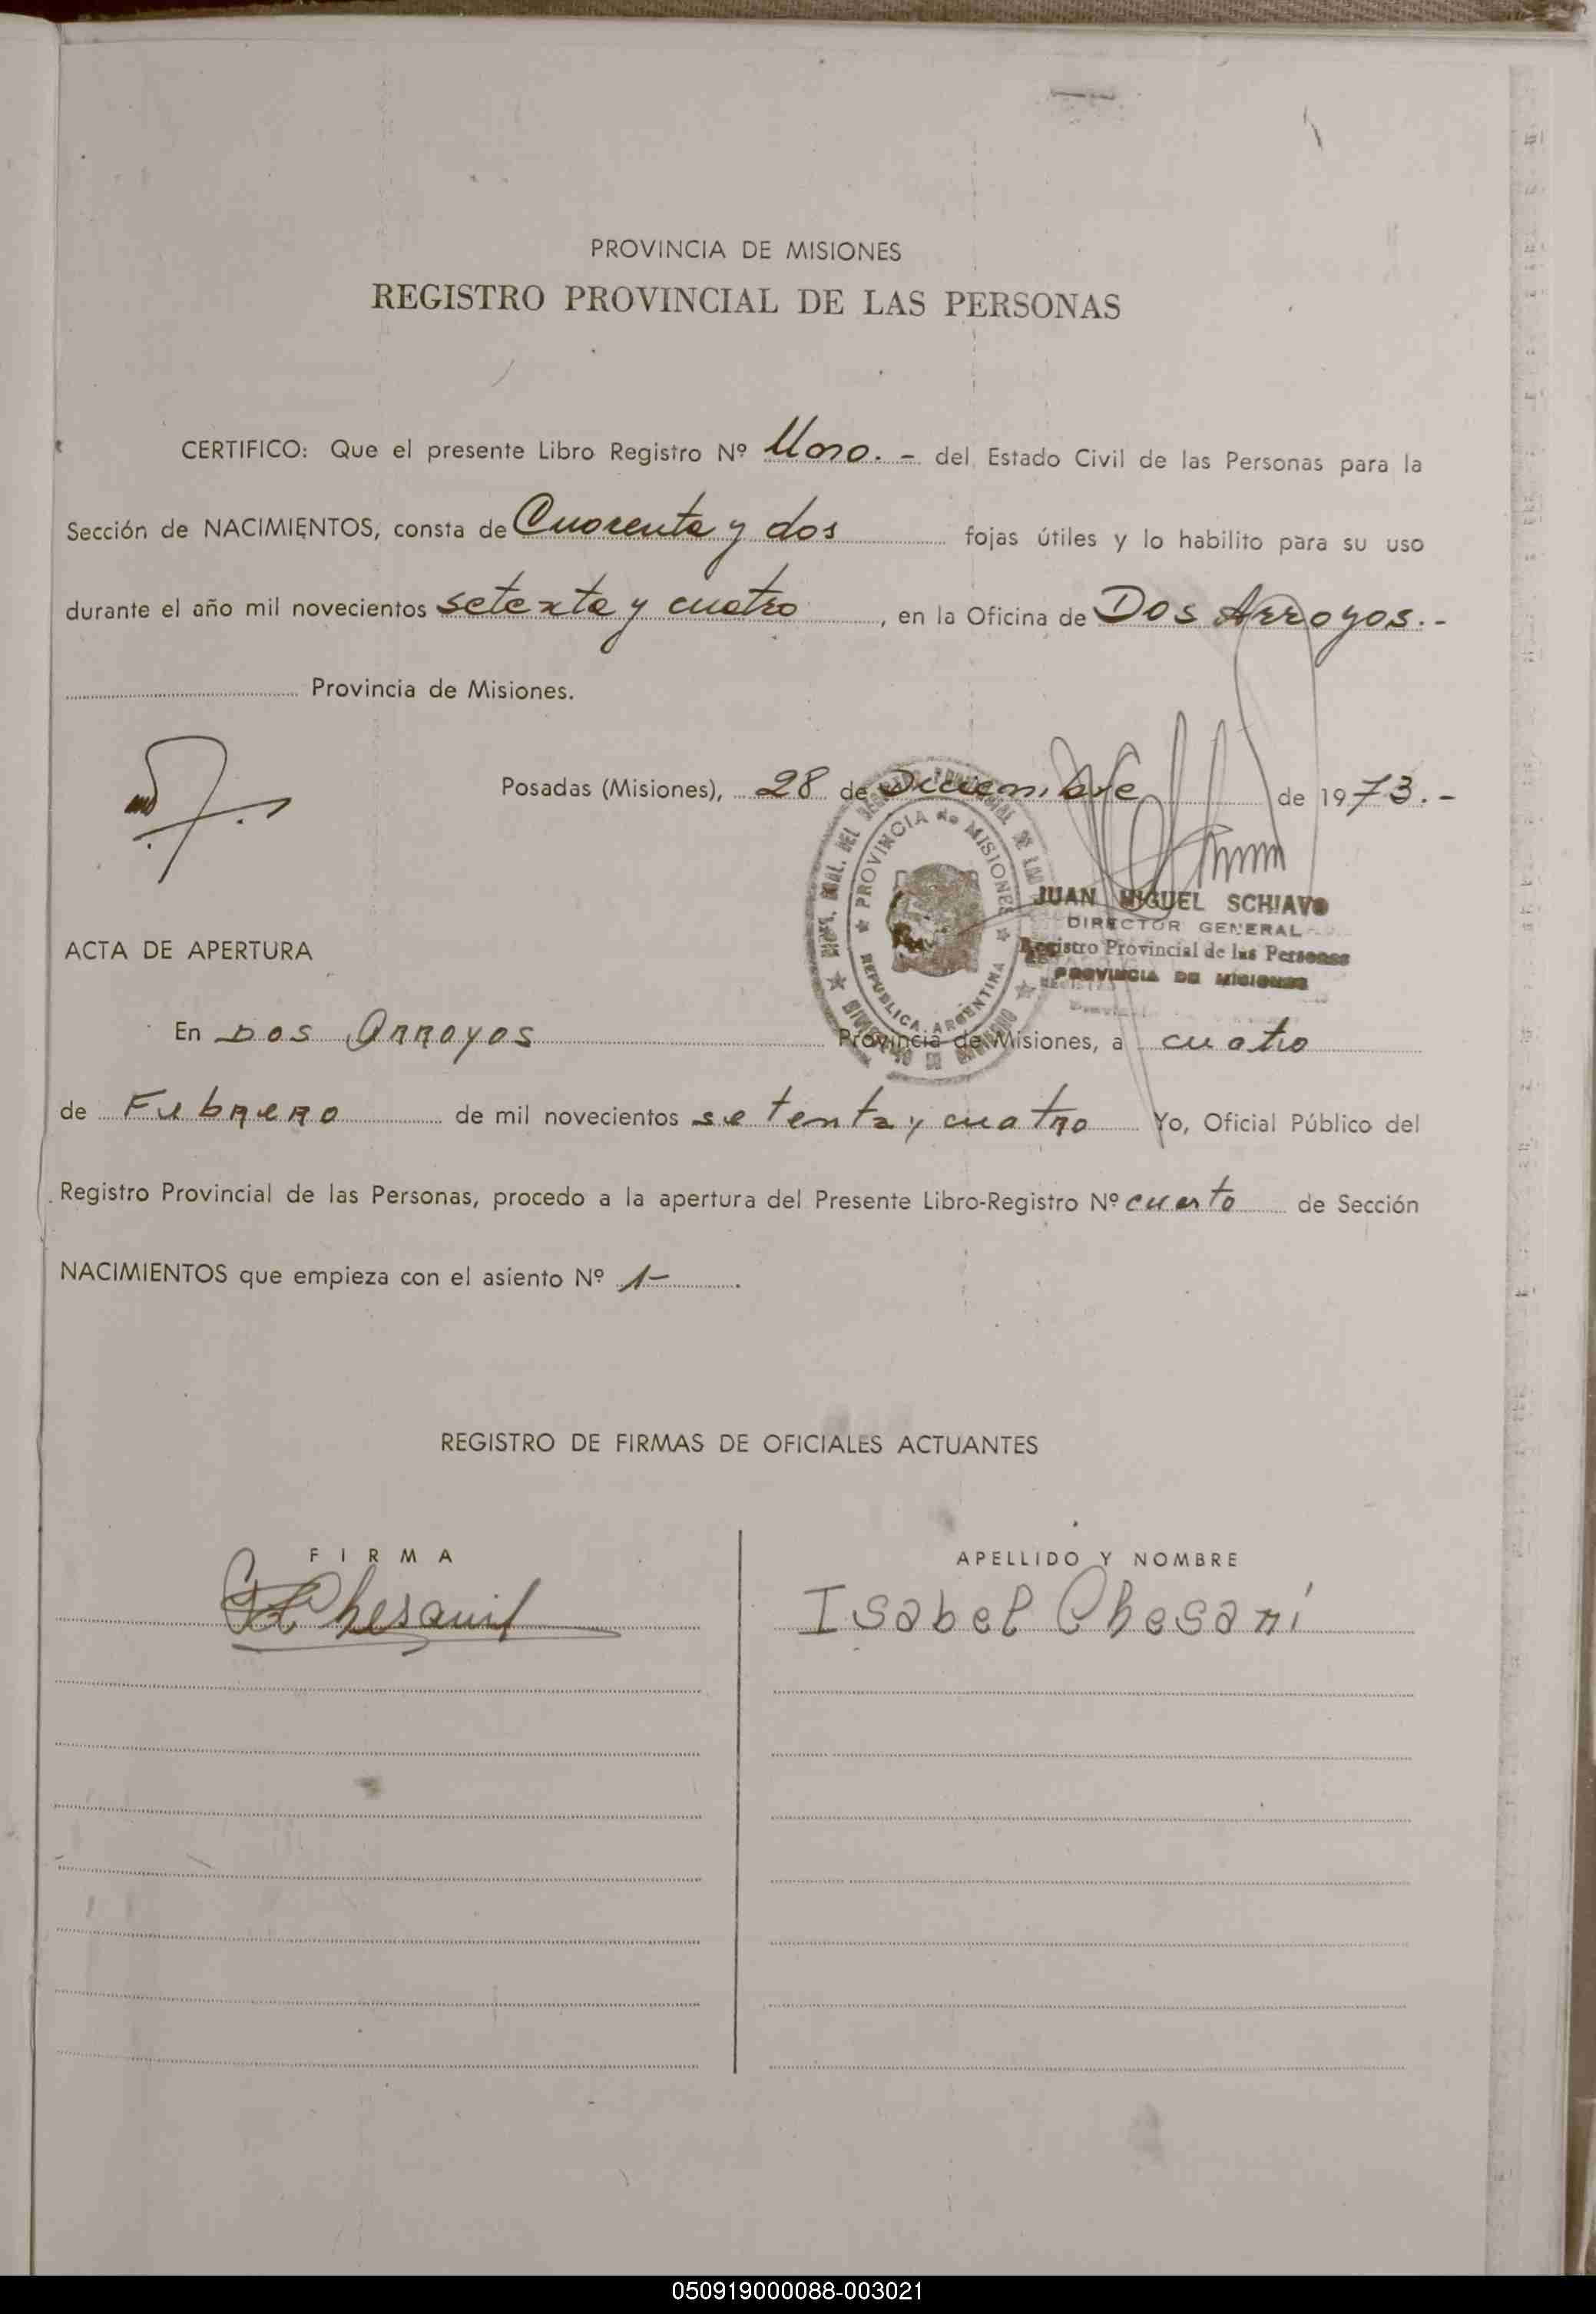 PROVINCIA DE MISIONES
REGISTRO PROVINCIAL DE LAS PERSONAS
CERTIFICO: Que el presente Libro Registro Nº Uno. - del Estado Civil de las Personas para la
Sección de NACIMIENTOS, consta de Cuarenta y dos fojas útiles y lo habilito para su uso
durante el año mil novecientos setenta y cuatro, en la Oficina de Dos Arroyos. -
Provincia de Misiones.
Posadas (Misiones), 28 de Diciembre de 1973. -
PROVINCIA de MISIONES
REPUBLICA ARGENTINA
JUAN MIGUEL SCHIAVO
DIRECTOR GENERAL
Registro Provincial de las Personas
PROVINCIA DE MISIONES
ACTA DE APERTURA
En Dos Arroyos Provincia de Misiones, a cuatro
de Fubrero de mil novecientos setenta y cuatro Yo, Oficial Público del
Registro Provincial de las Personas, procedo a la apertura del Presente Libro-Registro Nº cuarto de Sección
NACIMIENTOS que empieza con el asiento Nº 1-.
REGISTRO DE FIRMAS DE OFICIALES ACTUANTES
FIRMA APELLIDO Y NOMBRE
Isabel Chesani
050919000088-003021